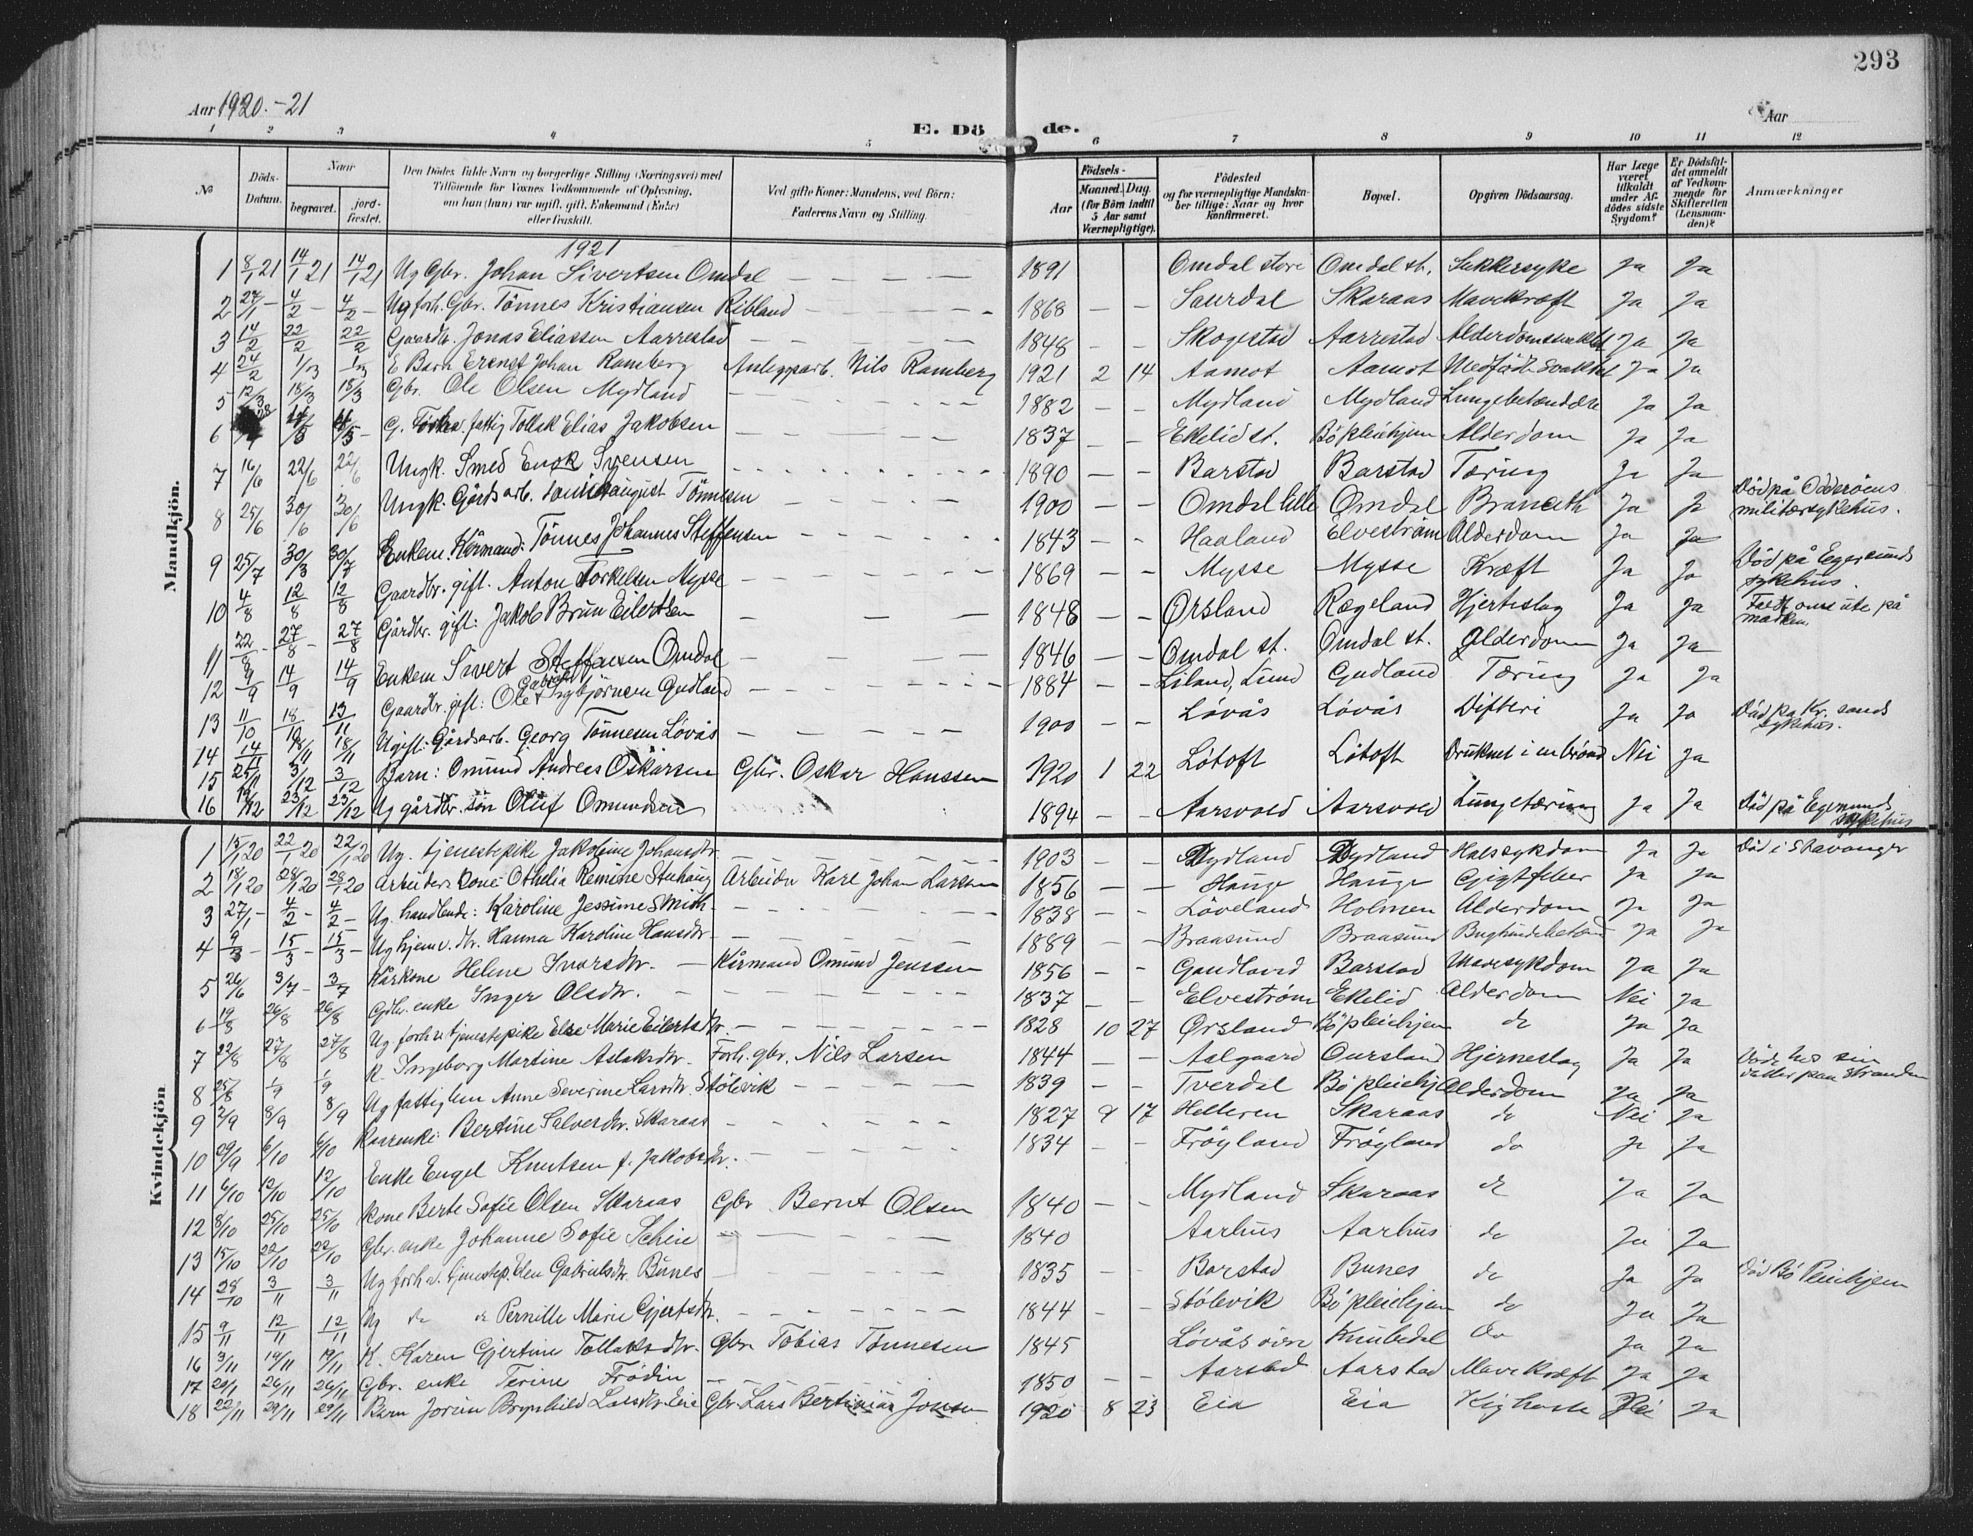 293
Aar 1920.-21
E. Dö de.
Aar
1 2 3 4 5 6 7 8 9 10 11 12
No
Döds-Datum.
Naar begravet. jord-fæstet.
Den Dödes fulde Navn og borgerlige Stilling (Næringsvei) med Tilföiende för Voxnes Vedkommende af Oplysning, om han (hun) var ugift, gift, Enkemand (Enke) eller fraskilt.
Ved gifte Koner: Mandens, ved Börn: Faderens Navn og Stilling.
Födsels- Aar Maaned. Dag. (for Börn indtil 5 Aar samt Værnepligtige).
Födested og for værnepligtige Mandskaber tillige: Naar og hvor konfirmeret.
Bopæl.
Opgiven Dödsaarsag.
Har Læge været tilkaldt under Afdödes sidste Sygdom?
Er Dödsfaldet anmeldt af Vedkommende for Skifteretten (Lensmanden)?
Anmærkninger
Mandkjön.
1921
1 8/1 21 14/1 21 14/1 21 Ug Gbr. Johan Sivertsen Omdal — 1891 Omdal store Omdal st. Sukkersyke Ja Ja
2 27/1 – 4/2 – 4/2 – Ug forh. Gbr. Tönnes Kristiansen Ribland — 1868 — — Saurdal Skaraas Mavekræft Ja Ja
3 14/2 22/2 22/2 Gaardb. Jonas Eliassen Aarrestad — 1848 — — Skogestad Aarrestad Ja Ja
4 24/2 1/3 1/3 E Barn Ernst Johan Ramberg Anleggsarb. Nils Ramberg 1921 2 14 Aamot Aamot Ja Ja
5 12/3 18/3 18/3 Gbr. Ole Olsen Mydland — 1882 — — Mydland Mydland Ja Ja
6 G. fattig Tollak Elias Jakobsen — 1837 — — Ekelid st. Bö pleiehjem Alderdom Ja Ja
7 16/6 22/6 22/6 Ungk. Smed Enok Svensen — 1890 — — Barstad Barstad Tæring Ja Ja
8 25/6 30/6 30/6 Ungk. Gårdsarb. august Tönnesen — 1900 — — Omdal lille Omdal Ja Ja Död på Odderöens militærsykehus.
9 25/7 30/3 30/7 Enkem. Kårmand: Tönnes Johannes Steffensen — 1843 — — Haaland Elveström Alderdom Ja Ja
10 4/8 12/8 12/8 Gaardbr. gift. Anton Torkelsen Mysse — 1869 — — Mysse Mysse Kræft Ja Ja Död på Egersunds sykehus.
11 22/8 – 27/8 – 27/8 Gårdbr. gift: Jakob Brun Eilertsen — 1848 — — Ørsland Rægeland Hjerteslag Ja Ja Faldt om ute på marken
12 9/9 14/9 14/9 Enkem Sivert Steffensen Omdal — 1846 — — Omdal st. Omdal st. Alderdom Ja Ja
13 11/10 18/10 13/11 Gaardbr. gift: Ole Gabriel Ingbjörnsen Gudland — 1884 — — Liland, Lund Gudland Tæring Ja Ja
14 14/11 18/11 18/11 Ugift: Gårdsarb. Georg Tönnesen Lövås — 1900 — — Lövås Lövås Difteri Ja Ja Död på Kr. sands sykehus.
15 3/12 3/12 Barn: Omund Andreas Oskarsen Gbr. Oskar Hanssen 1920 1 22 Lötoft Lötoft Druknet i en brönd Nei Ja
16 23/12 23/12 Ug gårdbr. sön Oluf Omundsen 1894 — — Aarsvold Aarsvold Lungetæring Ja Ja Död på Egersunds sykehus
Kvindekjön
1 15/1 20 22/1 20 22/1 20 Ug. tjenestepike Jakobine Johansdtr — 1903 — — Mydland Mydland Halssykdom Ja Ja Död i Stavanger
2 18/1 20 28/1 20 28/1 20 Arbeiders Kone Othelia Remine Stuhaug Arbeider Karl Johan Larsen 1856 — — Hauge Hauge Gigtfeber Ja Ja
3 27/1 – 4/2 – 4/2 – Ug. handlende: Karoline Jessine Smith — 1838 — — Löveland Holmen Alderdom Ja Ja
4 9/3 – 15/3 – 15/3 – Ug hjemv. dtr. Hanna Karoline Hansdtr. — 1889 — — Braasund Braasund Ja Ja
5 26/6 3/7 – 3/7 Kårkone Helene Ivarsdtr. — Kårmand Omund Jenssen 1856 — — Gaudland Barstad Mavesykdom Ja Ja
6 19/8 26/8 26/8 Gdbr. enke Inger Olsdtr. — 1837 — — Elveström Ekelid Alderdom Nei Ja
7 22/8 27/8 27/8 Ug. forhv. tjenestepike Else Marie Eilertsdtr. — 1828 10 27 Ørsland Bö pleiehjem do Ja Ja
8 25/8 1/9 1/9 K. Ingeborg Martine Aslaksdtr. Forh. gbr. Nils Larsen 1844 — — Aalgaard Oursland Hjerneslag Ja Ja Döde hos sin datter paa Stranden
9 2/9 8/9 8/9 Ug fattiglem Anne Severine Larsdtr. Stölevik — 1839 — — Tverdal Bö pleiehj Alderdom Ja Ja
10 29/9 6/10 6/10 Kaarenke: Bertine Salvesdtr. Skaraas — 1827 9 17 Helleren Skaraas do Nei Ja
11 6/10 12/10 12/10 Enke Engel Knutsen f. Jakobsdtr. — 1834 — — Fröyland Fröyland do Ja Ja
12 8/10 25/10 25/10 Kone Berte Sofie Olsen Skaraas Gbr. Bernt Olsen 1840 — — Mydland Skaraas do Ja Ja
13 15/10 22/10 22/10 Gbr. enke Johanne Sofie Scheie — 1840 Aarhus Aarhus do Ja Ja
14 28/10 3/11 3/11 Ug forhv. tjenestep. Elen Gabrielsdtr. Bunes — 1835 — Barstad Bunes do Ja Ja Död Bö Pleiehjem
15 9/11 12/11 12/11 Ug do do Pernille Marie Gjertsdtr. — 1844 — — Stölevik Bö pleiehjem do Ja Ja
16 9/11 19/11 19/11 K. Karen Gjertine Tollaksdtr. Gbr Tobias Tönnesen 1845 Lövås övre Knubedal do Ja Ja
17 26/11 26/11 Gbr. enke Terine Frödin — 1850 — — Aarstad Aarstad Mavekræft Ja Ja
18 22/11 29/11 29/11 Barn Jorun Brynhild Larsdtr. Eie Gbr Lars Bertinius Jonsen 1920 8 23 Eia Eia Kighoste Nei Ja